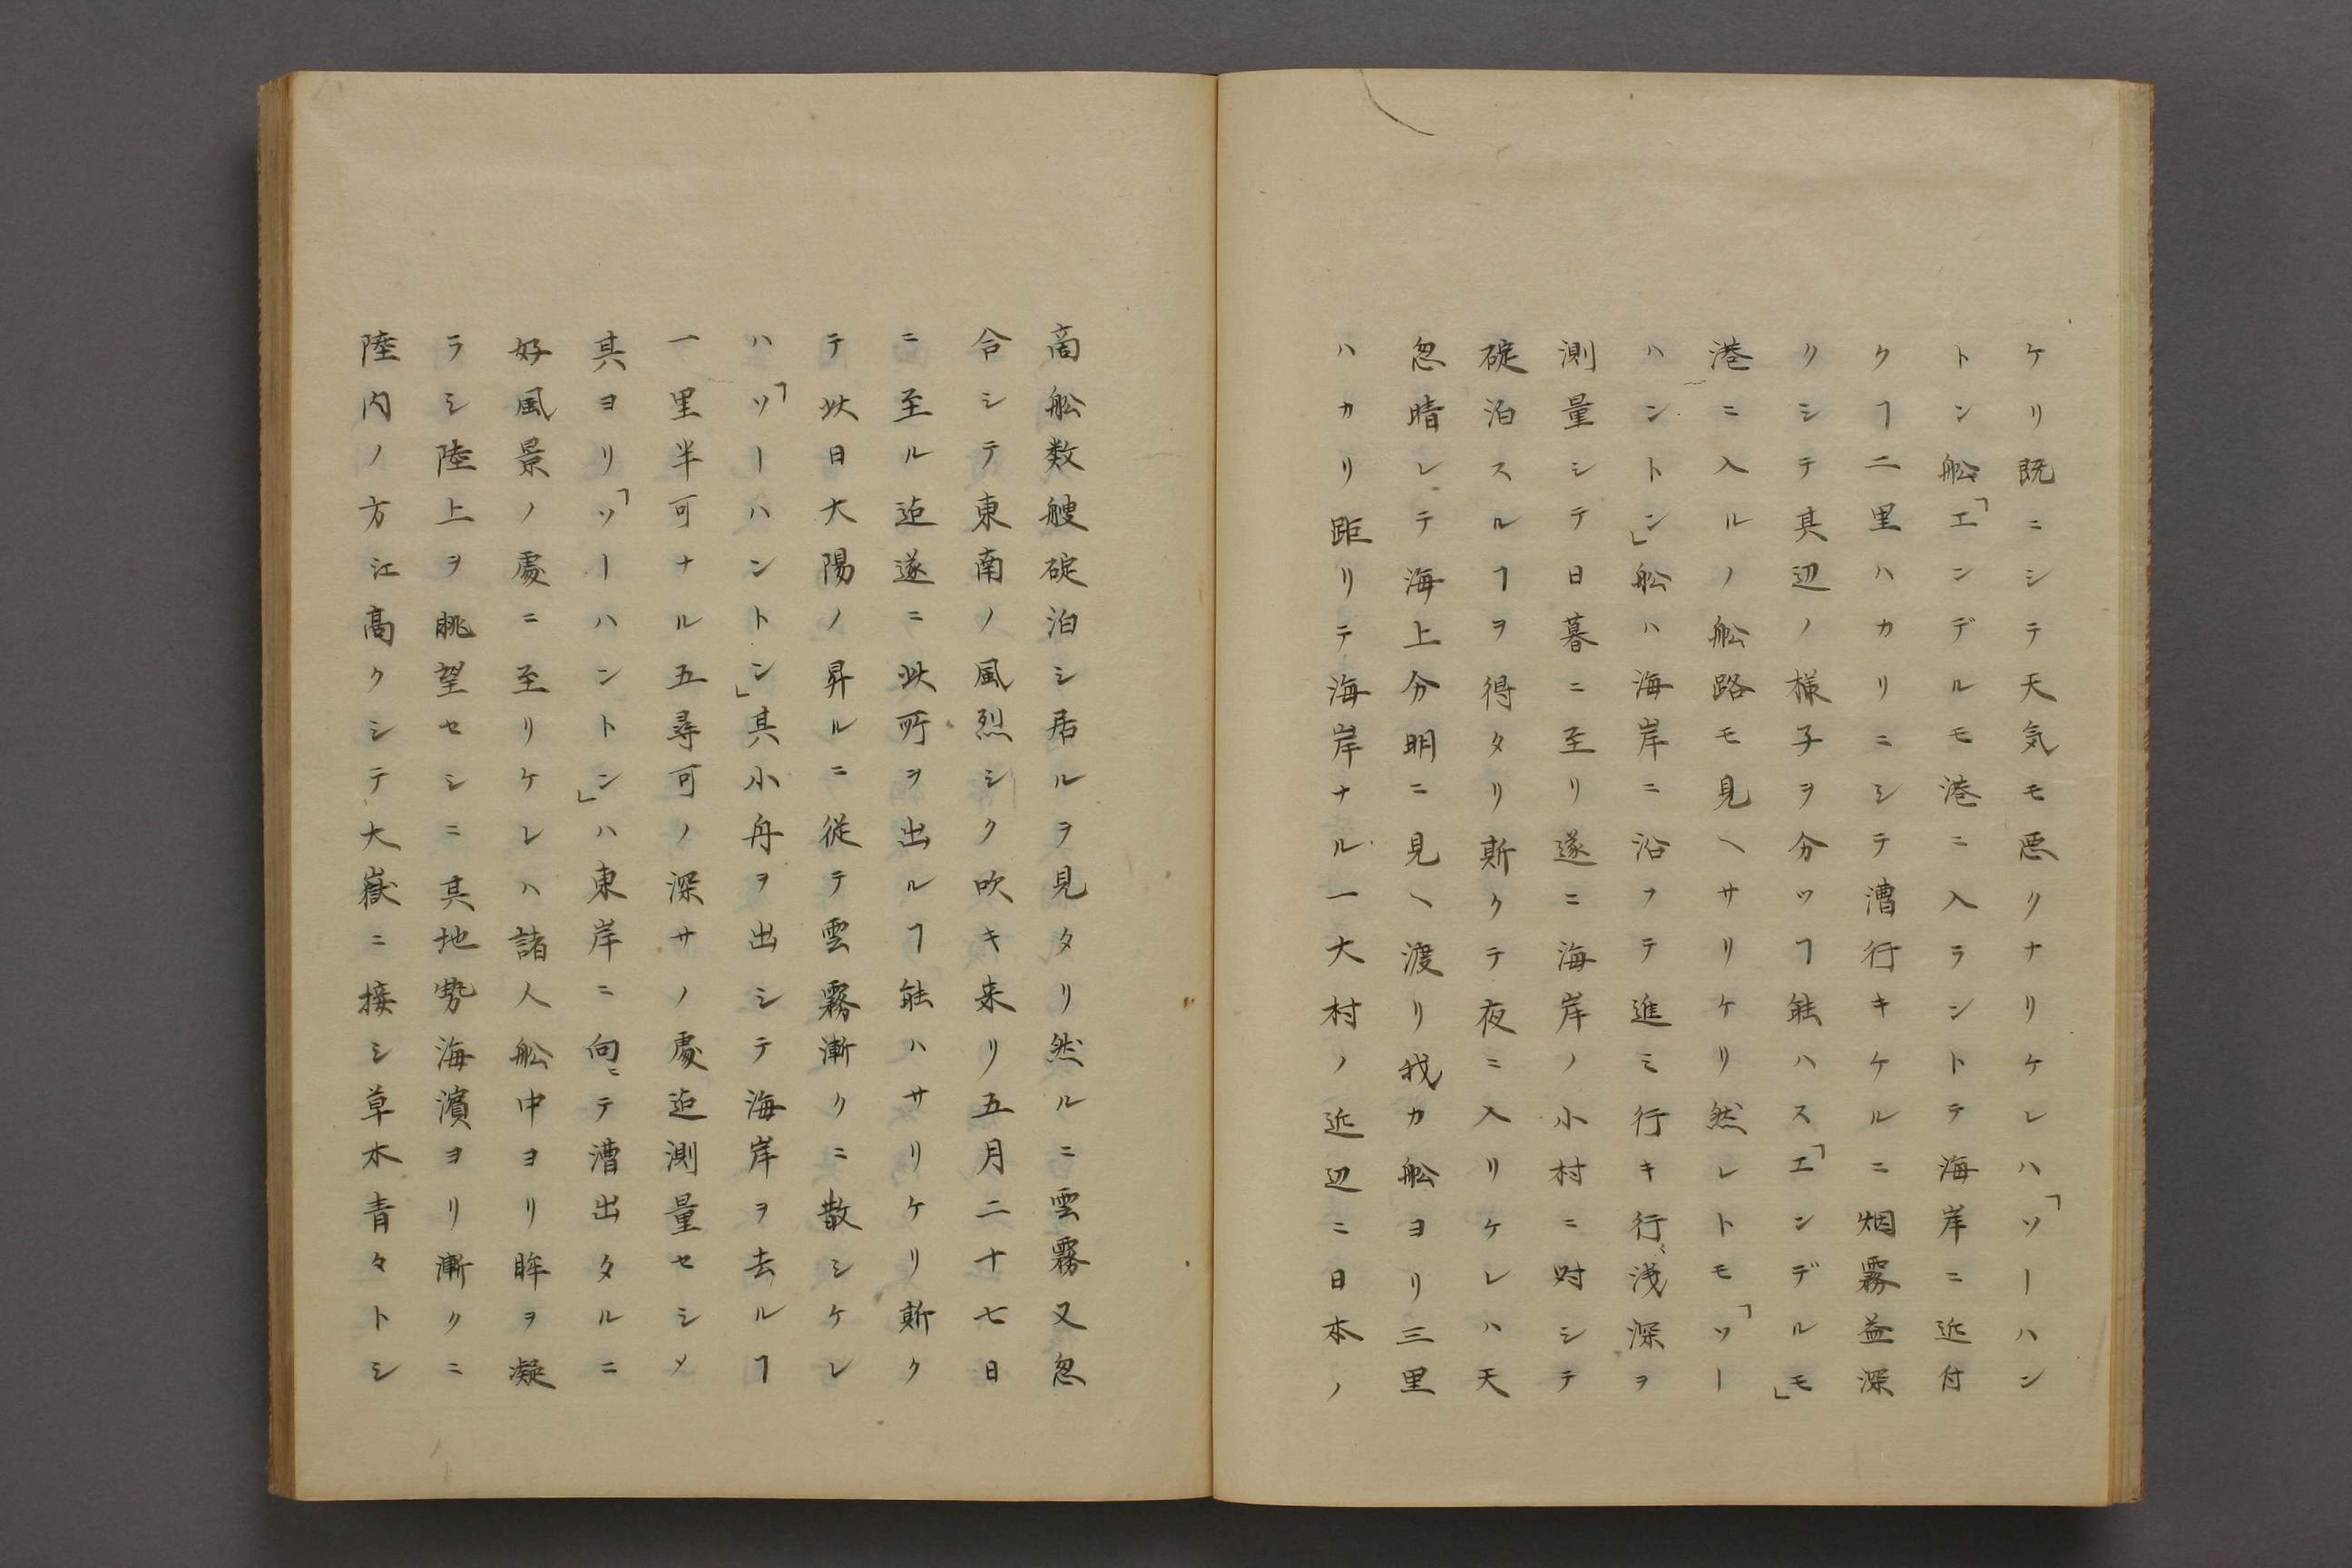 ケリ既ニシテ天気モ悪クナリケレハ「ソーハン
トン船「エンデルモ港ニ入ラントテ海岸ニ近付
クヿ二里ハカリニシテ漕行キケルニ烟霧益深
クシテ其辺ノ様子ヲ分ツヿ能ハス「エンデルモ」
港ニ入ルノ舩路モ見ヘサリケリ然レトモ「ソー
ハントン」舩ハ海岸ニ沿フテ進ミ行キ行〻浅深ヲ
測量シテ日暮ニ至リ遂ニ海岸ノ小村ニ対シテ
碇泊スルヿヲ得タリ斯クテ夜ニ入リケレハ天
忽晴レテ海上分明ニ見ヘ渡リ我カ舩ヨリ三里
ハカリ距リテ海岸ナル一大村ノ近辺ニ日本ノ
商舩数艘碇泊シ居ルヲ見タリ然ルニ雲霧又忽
合シテ東南ノ風烈シク吹キ来リ五月二十七日
ニ至ル迠遂ニ此所ヲ出ルヿ能ハサリケリ斯ク
テ此日大陽ノ昇ルニ従テ雲霧漸クニ散シケレ
ハ「ソーハントン」其小舟ヲ出シテ海岸ヲ去ルヿ
一里半可ナル五尋可ノ深サノ處迠測量セシメ
其ヨリ「ソーハントン」ハ東岸ニ向ニテ漕出タルニ
好風景ノ處ニ至リケレハ諸人舩中ヨリ眸ヲ凝
ラシ陸上ヲ眺望セシニ其地勢海濱ヨリ漸クニ
陸内ノ方江高クシテ大嶽ニ接シ草木青々トシ